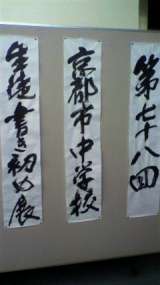 第七十八回
京都市中学校
生徒書き初め展